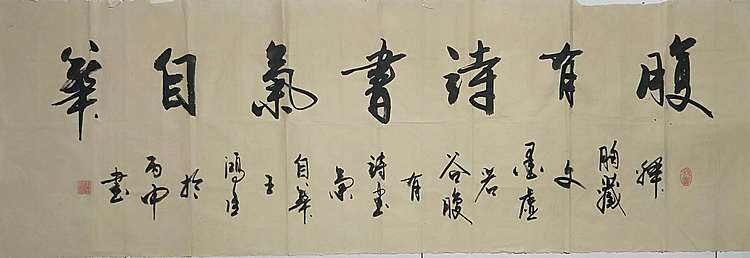 腹有詩書氣自華
釋胸藏文墨虛若谷腹有詩書氣自華王鴻於丙申書